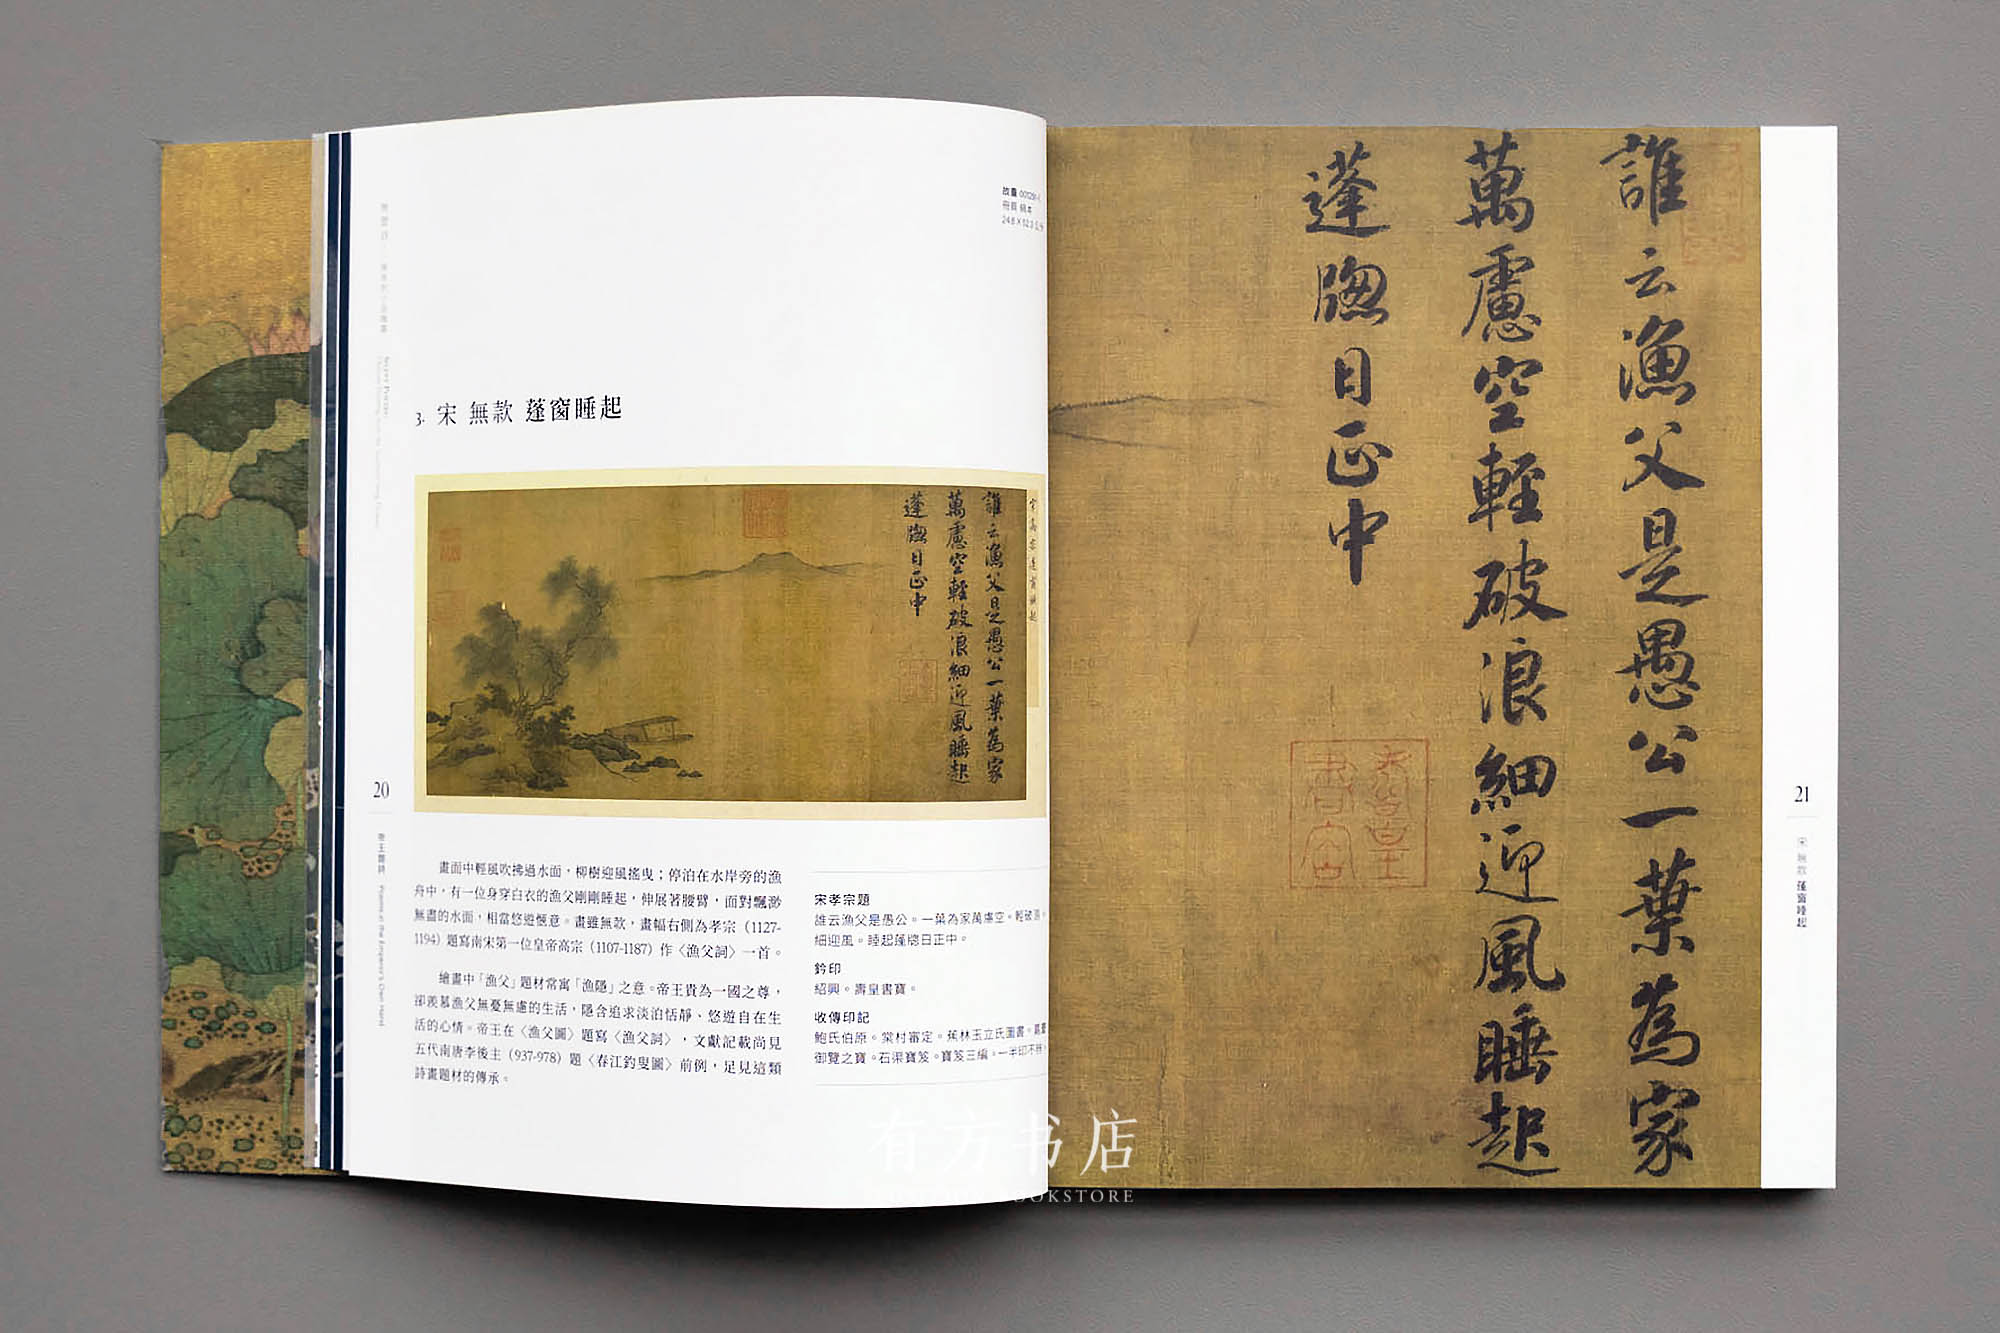 故畫 001291-1
冊頁 絹本
3. 宋 無款 蓬窗睡起
誰云漁父是愚公一葉為家
萬慮空輕破浪細迎風睡起
蓬牕日正中
20
帝王題詩 Poems in the Emperor's Own Hand
畫面中輕風吹拂過水面，柳樹迎風搖曳；停泊在水岸旁的漁
舟中，有一位身穿白衣的漁父剛剛睡起，伸展著腰臂，面對飄渺
無盡的水面，相當悠遊愜意。畫雖無款，畫幅右側為孝宗（1127-
1194）題寫南宋第一位皇帝高宗（1107-1187）作〈漁父詞〉一首。
繪畫中「漁父」題材常寓「漁隱」之意。帝王貴為一國之尊，
卻羨慕漁父無憂無慮的生活，隱含追求淡泊恬靜、悠遊自在生
活的心情。帝王在〈漁父圖〉題寫〈漁父詞〉，文獻記載尚見
五代南唐李後主（937-978）題〈春江釣叟圖〉前例，足見這類
詩畫題材的傳承。
宋孝宗題
誰云漁父是愚公。一葉為家萬慮空。輕破浪。
細迎風。睡起蓬牕日正中。
鈐印
紹興。壽皇書寶。
收傳印記
鮑氏伯原。棠村審定。蕉林玉立氏圖書。嘉慶
御覽之寶。石渠寶笈。寶笈三編。一半印不辨。
誰云漁父是愚公一葉為家
萬慮空輕破浪細迎風睡起
蓬牕日正中
21
宋 無款 蓬窗睡起
有方书店